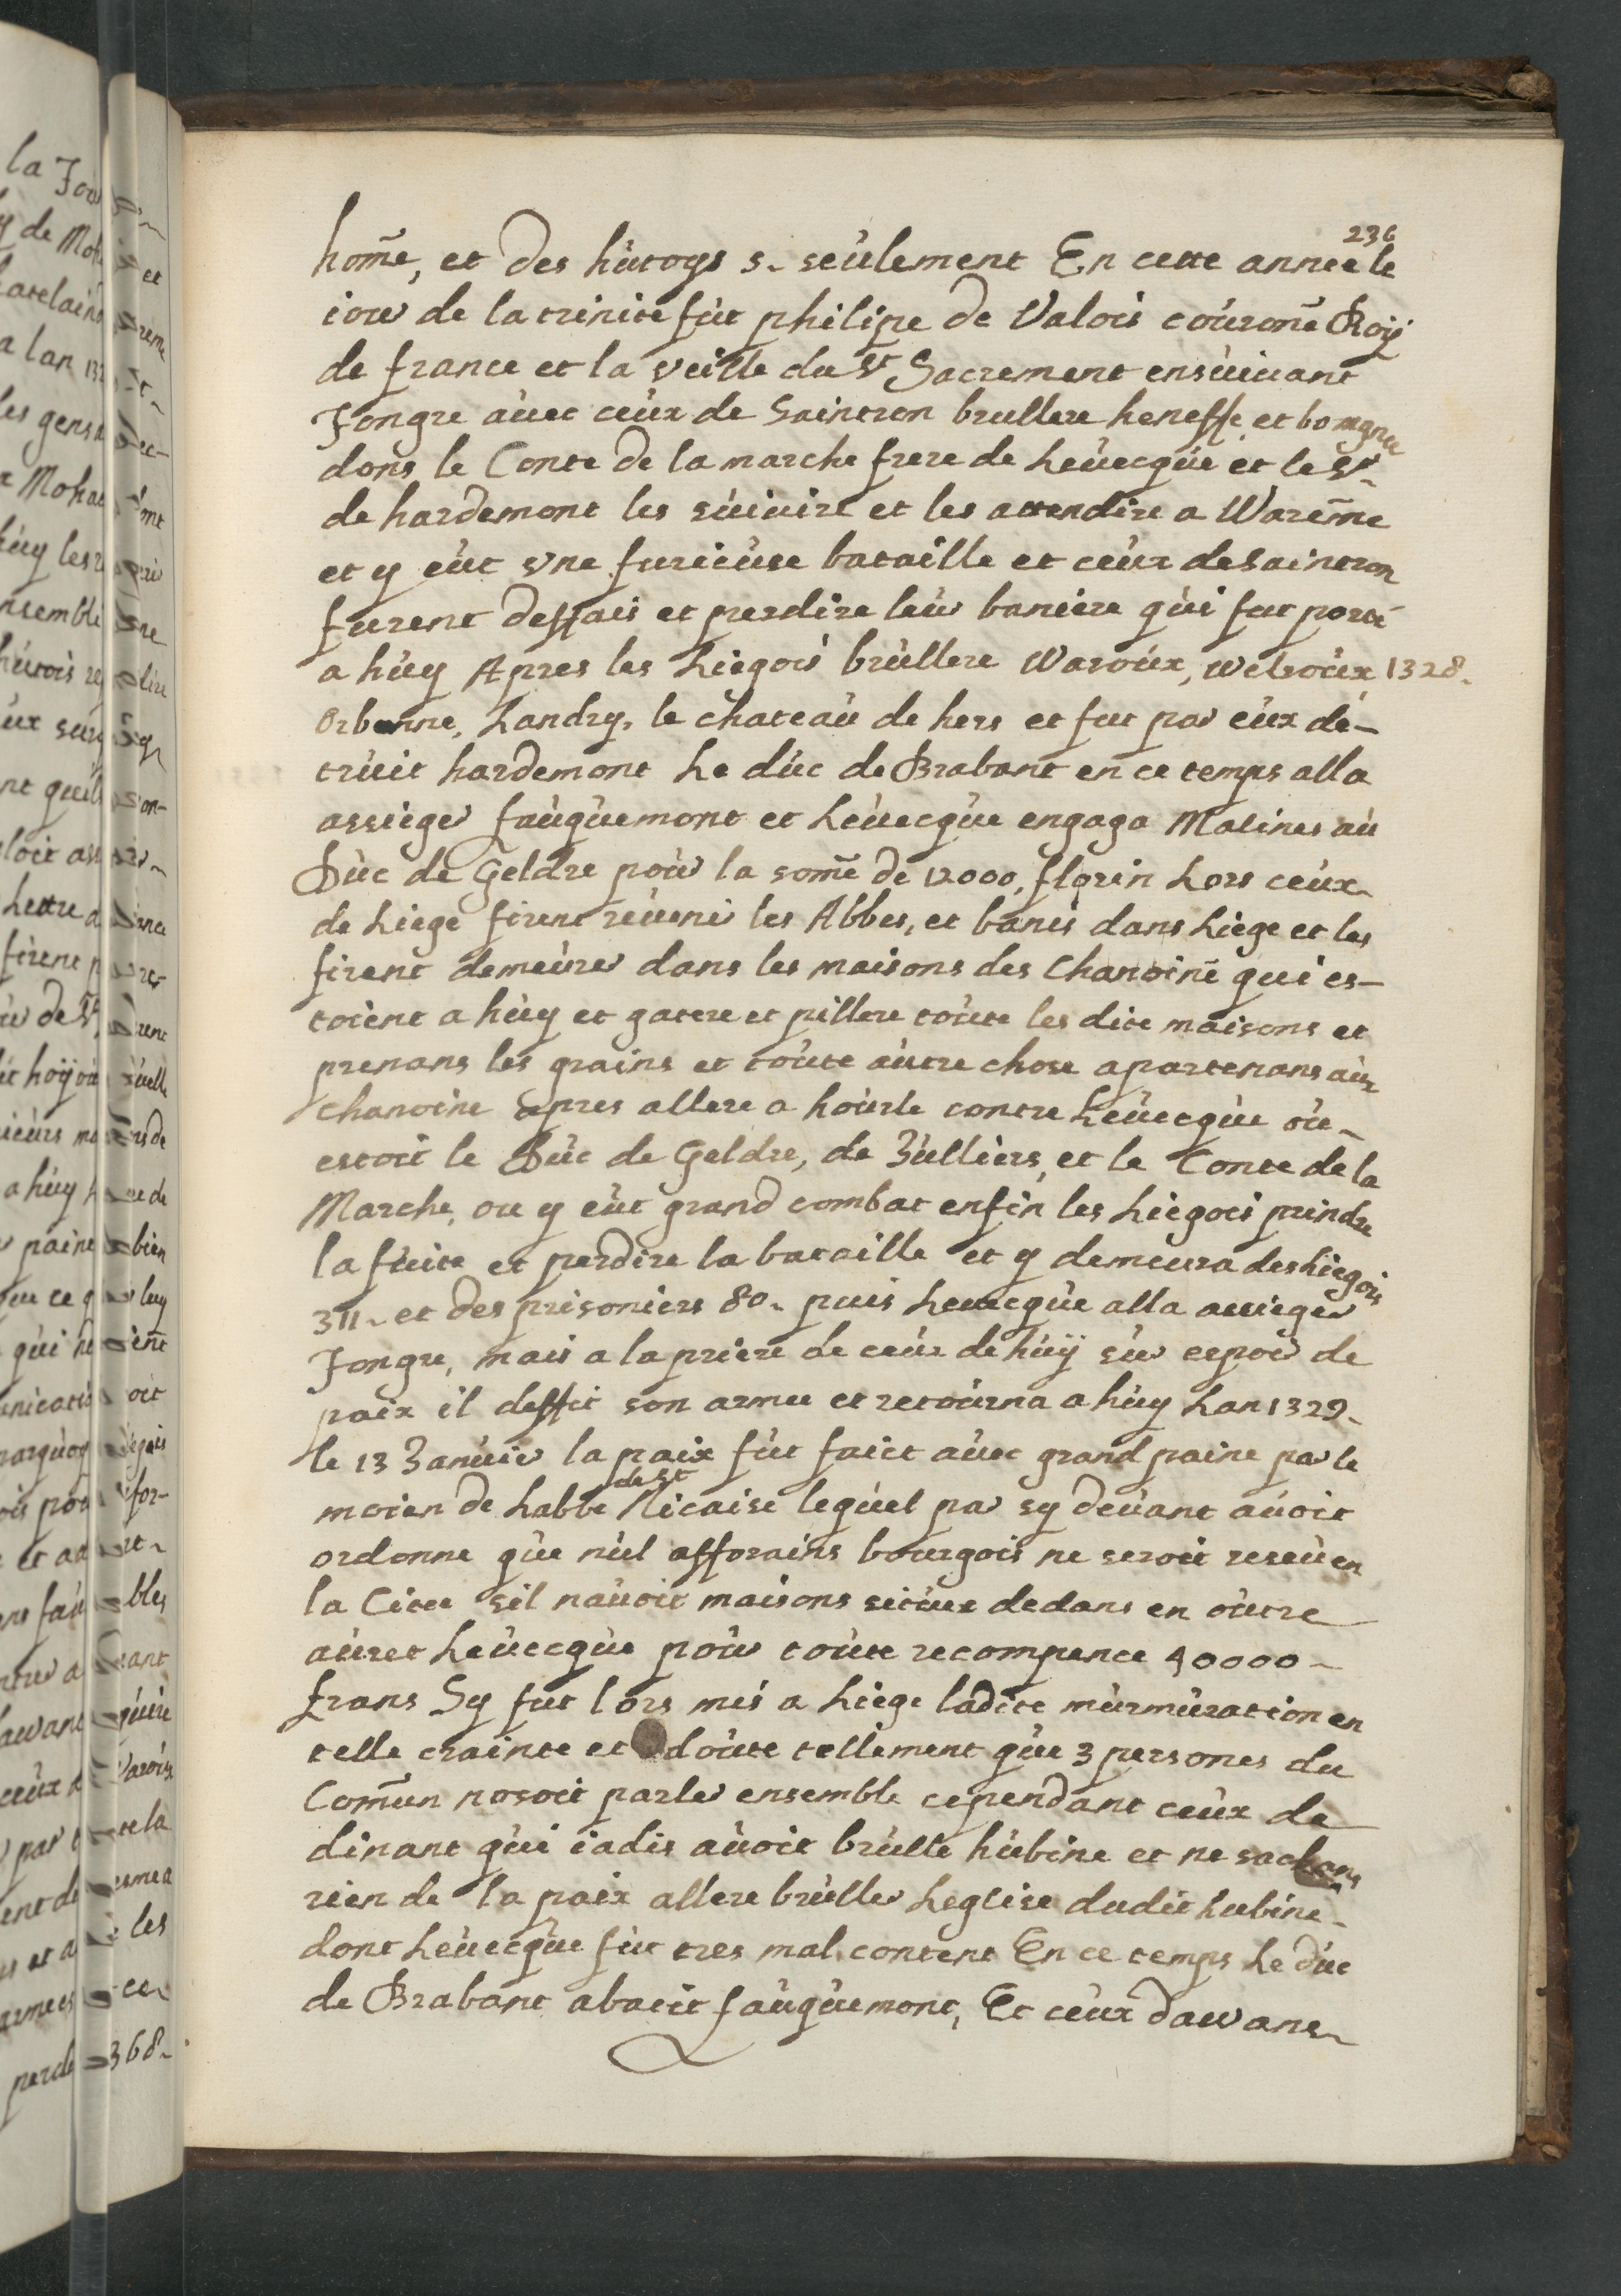 236
home, et des hutoys 5. seulement En cette annee le
iour de la trinite fut philipe de Valois couronē Roÿ
de france et la veille du St Sacrement ensuiuant
Tongre auec ceux de Saintron brullere heneffe, et bomgne
dons le Conte de la marche frere de Leuecque et le Sr
de hardemont les suiuire et les attendire a Waremē
et y eut vne furieuse bataille et ceux de Saintron
furent deffais et perdire leur baniere qui fut porté
a huy Apres les Liegois brullere Waroux, Welroux 1328.
Orbanne, Landry, le chateau de hers et fut par eux de-
truit hardemont Le duc de Brabant en ce temps alla
assieger fauquemont et Leuecque engaga Malines au
Duc de Geldre pour la somē de 12000, florin Lors ceux
de Liege firent reuenir les Abbes, et banis dans Liege et les
firent demeurer dans les maisons des Chanoinē qui es-
toient a huy et gatere et pillere toute les dite maisons et
prenans les grains et toute autre chose apartenans aux
chanoine apres allere a hourle contre Leuecque ou
estoit le Duc de Geldre, de Julliers, et le Conte de la
Marche, ou y eut grand combat enfin les Liegois prindre
la fuite et perdire la bataille et y demeura des Liegois
311. et des prisoniers 80. puis Leuecque alla assieger
Tongre, mais a la priere de ceux de huÿ sur espoir de
paix il deffit son armee et retourna a huy Lan 1329.
le 13 Januier la paix fut faict auec grand paine par le
moien de Labbe de St Nicaise lequel par sy deuant auoit
ordonne que nul afforains bourgois ne seroit reseu en
la Citee sil nauoit maisons situee dedans en outre
auret Leuecque pour toute recompence 40000
frans Sy fut lors mis a Liege ladite murmuration en
telle crainte et doute tellement que 3 persones du
Comun nosoit parler ensemble cependant ceux de
dinant qui iadis auoit brulle hubine et ne sachans
rien de la paix allere bruller Leglise dudit hubine
dont Leuecque fut tres mal content En ce temps Le duc
de Brabant abatit fauquemont, Et ceux dawans